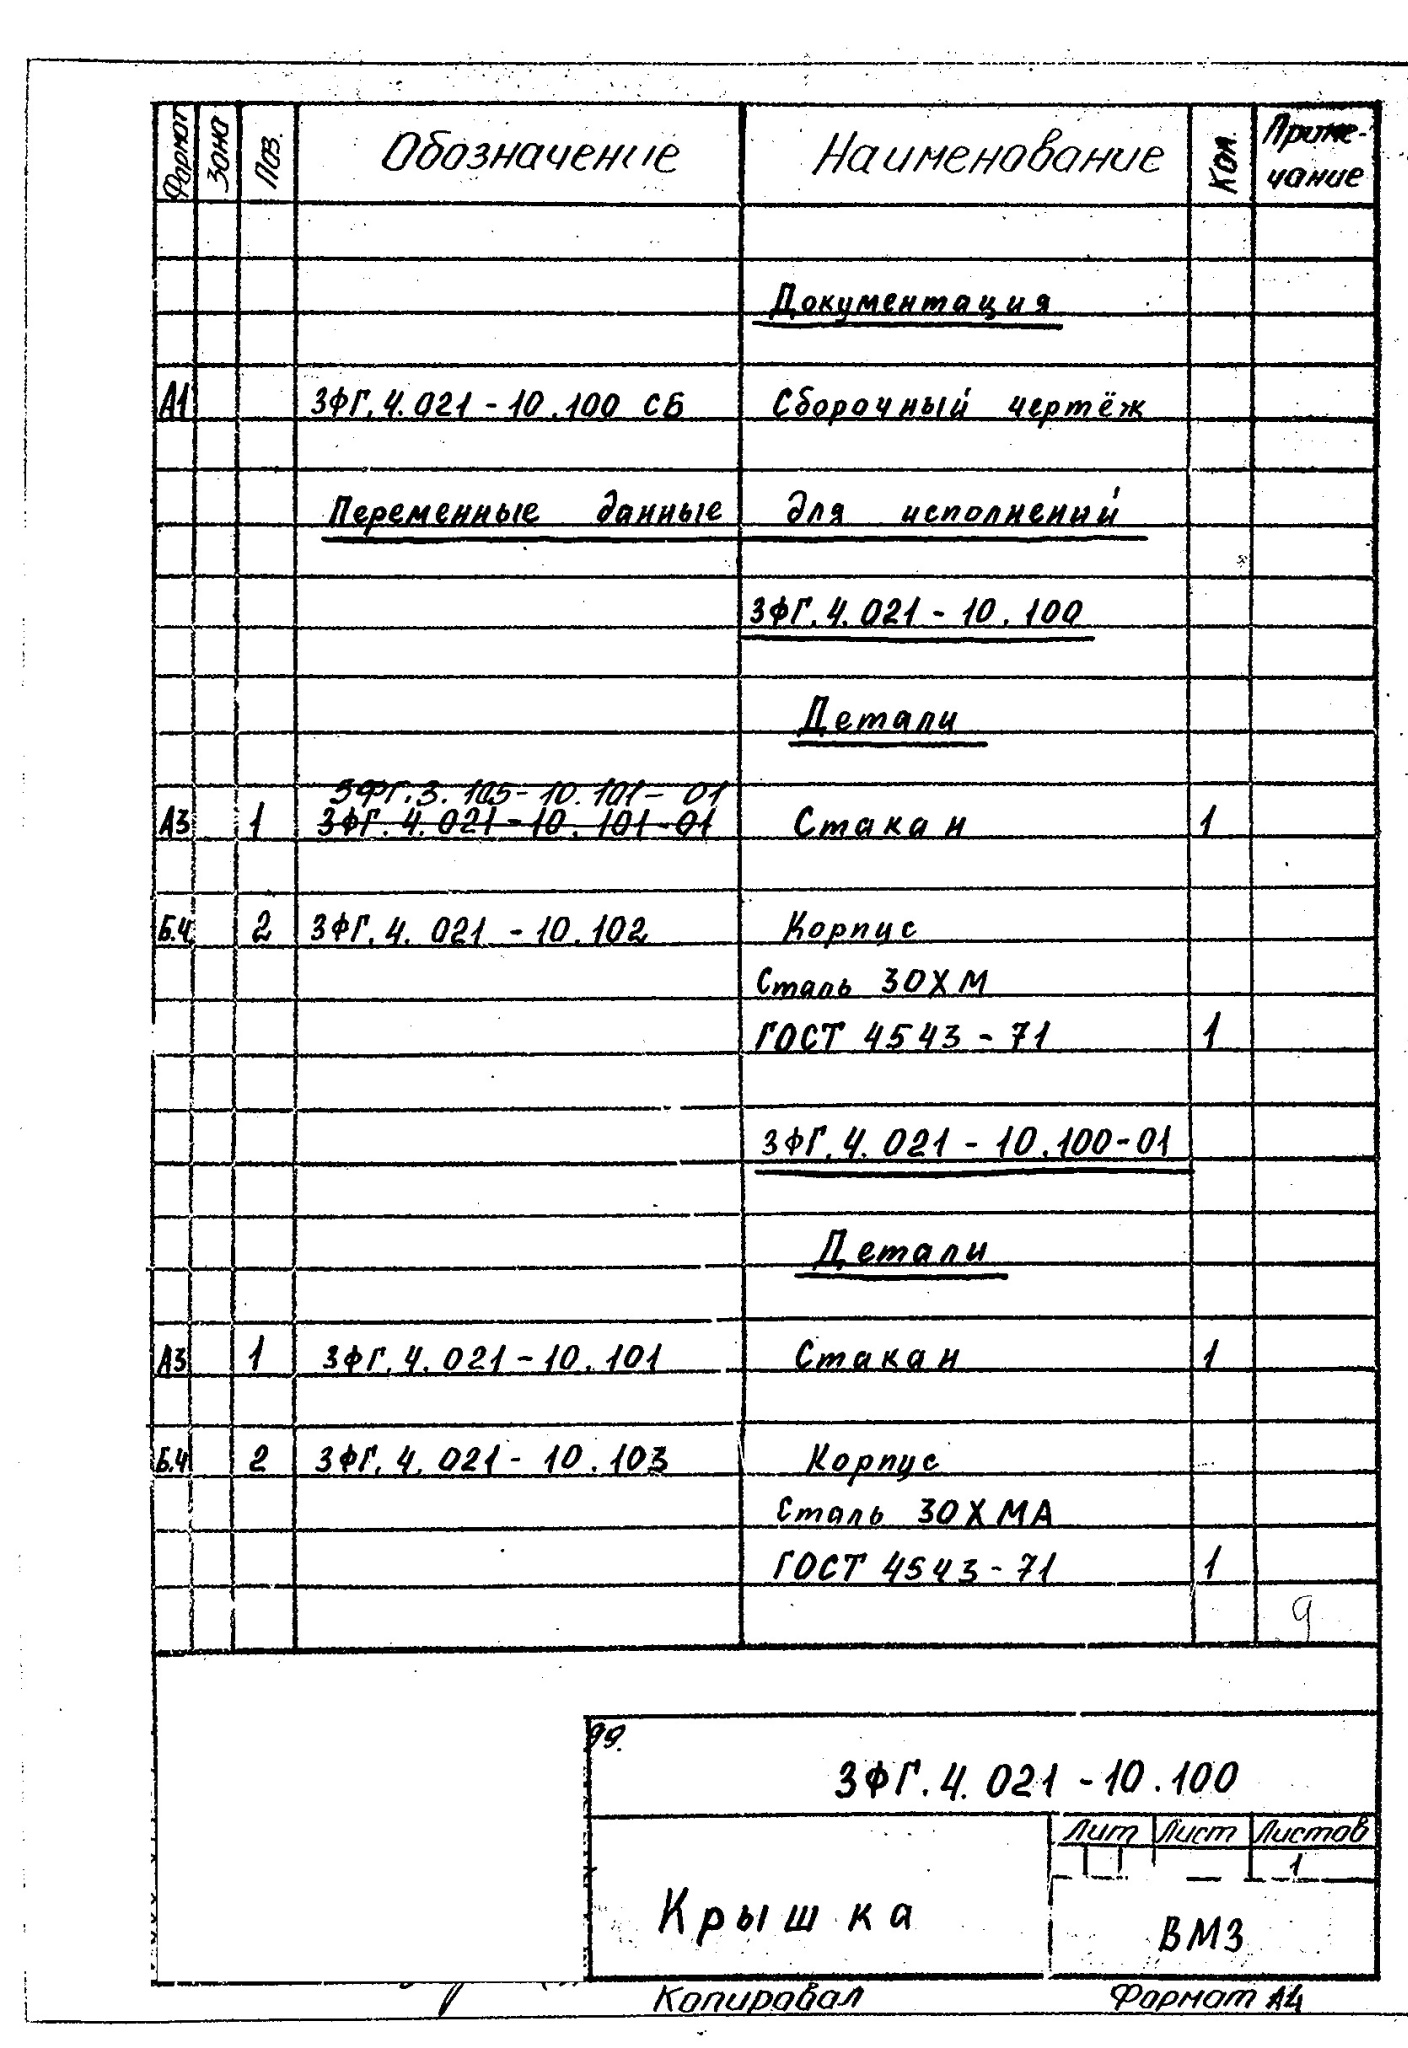 Формат Зона Поз. Обозначение Наименование Кол. Приме-
чание
Документация
А1 ЗФГ.4.021-10.100 СБ Сборочный чертёж
Переменные данные для исполнений
ЗФГ.4.021-10.100
Детали
ЗФГ.3.105-10.101-01
А3 1 ЗФГ.4.021-10.101-01 Стакан 1
Б.4 2 ЗФГ.4.021-10.102 Корпус
Сталь 30ХМ
ГОСТ 4543-71 1
ЗФГ.4.021-10.100-01
Детали
А3 1 ЗФГ.4.021-10.101 Стакан 1
Б.4 2 ЗФГ.4.021-10.103 Корпус
Сталь 30ХМА
ГОСТ 4543-71 1
9
ЗФГ.4.021-10.100
Лит Лист Листов
1
Крышка
ВМЗ
Копировал Формат А4